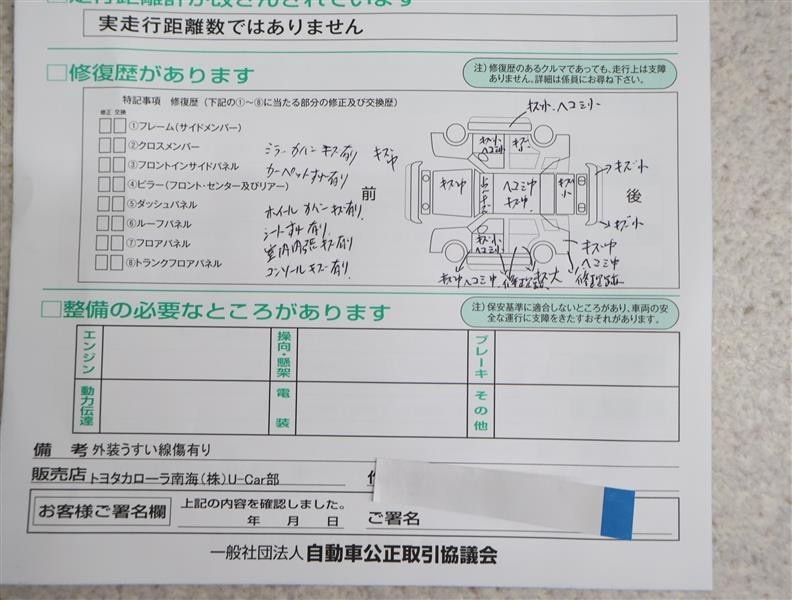 実走行距離数ではありません
□修復歴があります
注）修復歴のあるクルマであっても、走行上は支障
ありません。詳細は係員にお尋ね下さい。
特記事項　修復歴（下記の①～⑧に当たる部分の修正及び交換歴）
修正 交換
①フレーム（サイドメンバー）
②クロスメンバー
③フロントインサイドパネル
④ピラー（フロント・センター及びリアー）
⑤ダッシュパネル
⑥ルーフパネル
⑦フロアパネル
⑧トランクフロアパネル
ミラーカバーキズ有り キズ中
ホイールカバーキズ有り
室内内張キズ有り
コンソールキズ有り
前
後
キズ小、ヘコミ小
キズ小
ヘコミ小
キズ小
キズ中
ヘコミ中
キズ中
キズ小
キズ小
キズ小
キズ小
ヘコミ中
キズ中
ヘコミ中
キズ中 ヘコミ中
キズ大
□整備の必要なところがあります
注）保安基準に適合しないところがあり、車両の安
全な運行に支障をきたすおそれがあります。
エンジン
操向・懸架
ブレーキ
動力伝達
電装
その他
備　考 外装うすい線傷有り
販売店 トヨタカローラ南海（株）U-Car部
お客様ご署名欄
上記の内容を確認しました。
年　月　日
ご署名
一般社団法人 自動車公正取引協議会